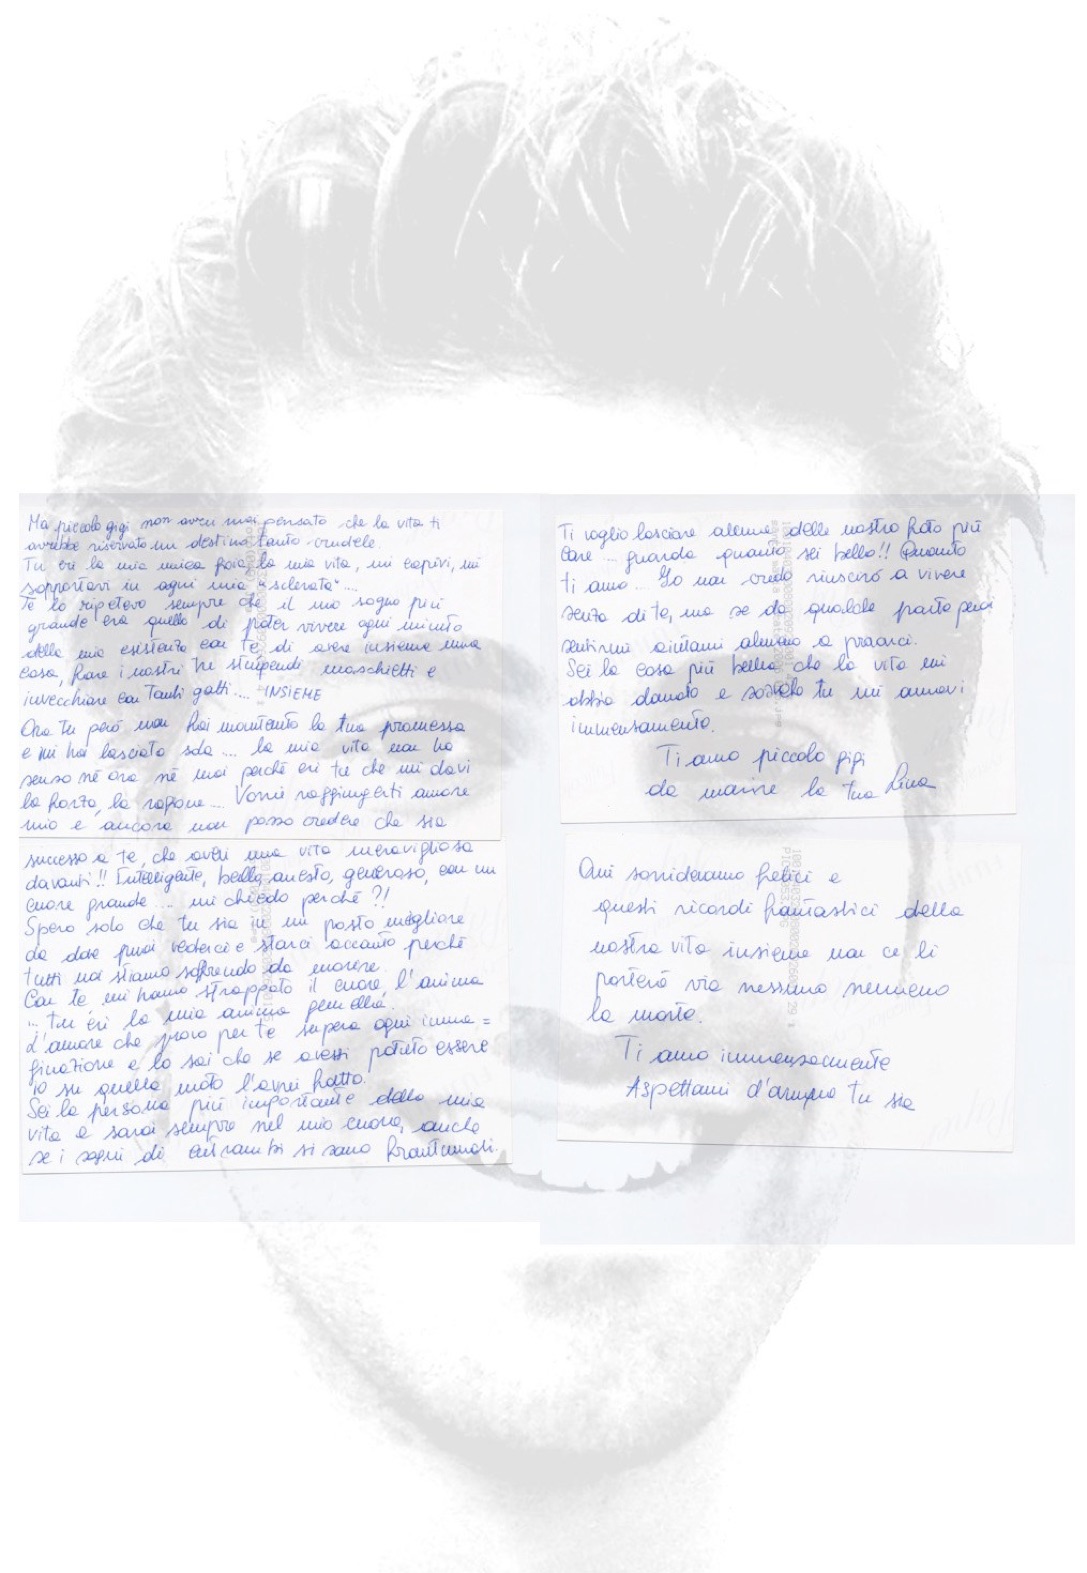 Ma piccolo gigi non avrei mai pensato che la vita ti
avrebbe riservato un destino tanto crudele.
Tu eri la mia unica gioia, la mia vita, mi capivi, mi
sopportavi in ogni mia "sclerata"....
Te lo ripetevo sempre che il mio sogno più
grande era quello di poter vivere ogni minuto
della mia esistenza con te, di avere insieme una
casa, fare i nostri tre stupendi maschietti e
invecchiare con tanti gatti.... INSIEME
Ora tu però non hai mantenuto la tua promessa
e mi hai lasciato sola.... la mia vita non ha
senso nè ora nè mai perchè eri tu che mi davi
la forza, la ragione.... Vorrei raggiungerti amore
mio e ancora non posso credere che sia
successo a te, che avevi una vita meravigliosa
davanti!! Intelligente, bello, onesto, generoso, con un
cuore grande.... mi chiedo perchè?!
Spero solo che tu sia in un posto migliore
da dove puoi vederci e starci accanto perchè
tutti noi stiamo soffrendo da morire.
Con te mi hanno strappato il cuore, l'anima
... tu eri la mia anima gemella.
L'amore che provo per te supera ogni imma=
ginazione e lo sai che se avessi potuto essere
io su quella moto l'avrei fatto.
Sei la persona più importante della mia
vita e sarai sempre nel mio cuore, anche
se i sogni di entrambi si sono frantumati.
Ti voglio lasciare alcune delle nostre foto più
care.... guarda quanto sei bello!! Quanto
ti amo... Io non credo riuscirò a vivere
senza di te, ma se da qualche parte puoi
sentirmi aiutami almeno a provarci.
Sei la cosa più bella che la vita mi
abbia donato e so che tu mi amavi
immensamente.
Ti amo piccolo gigi
da morire la tua
Qui sorridevamo felici e
questi ricordi fantastici della
nostra vita insieme non ce li
porterà via nessuno nemmeno
la morte.
Ti amo immensamente
Aspettami d'ovunque tu sia